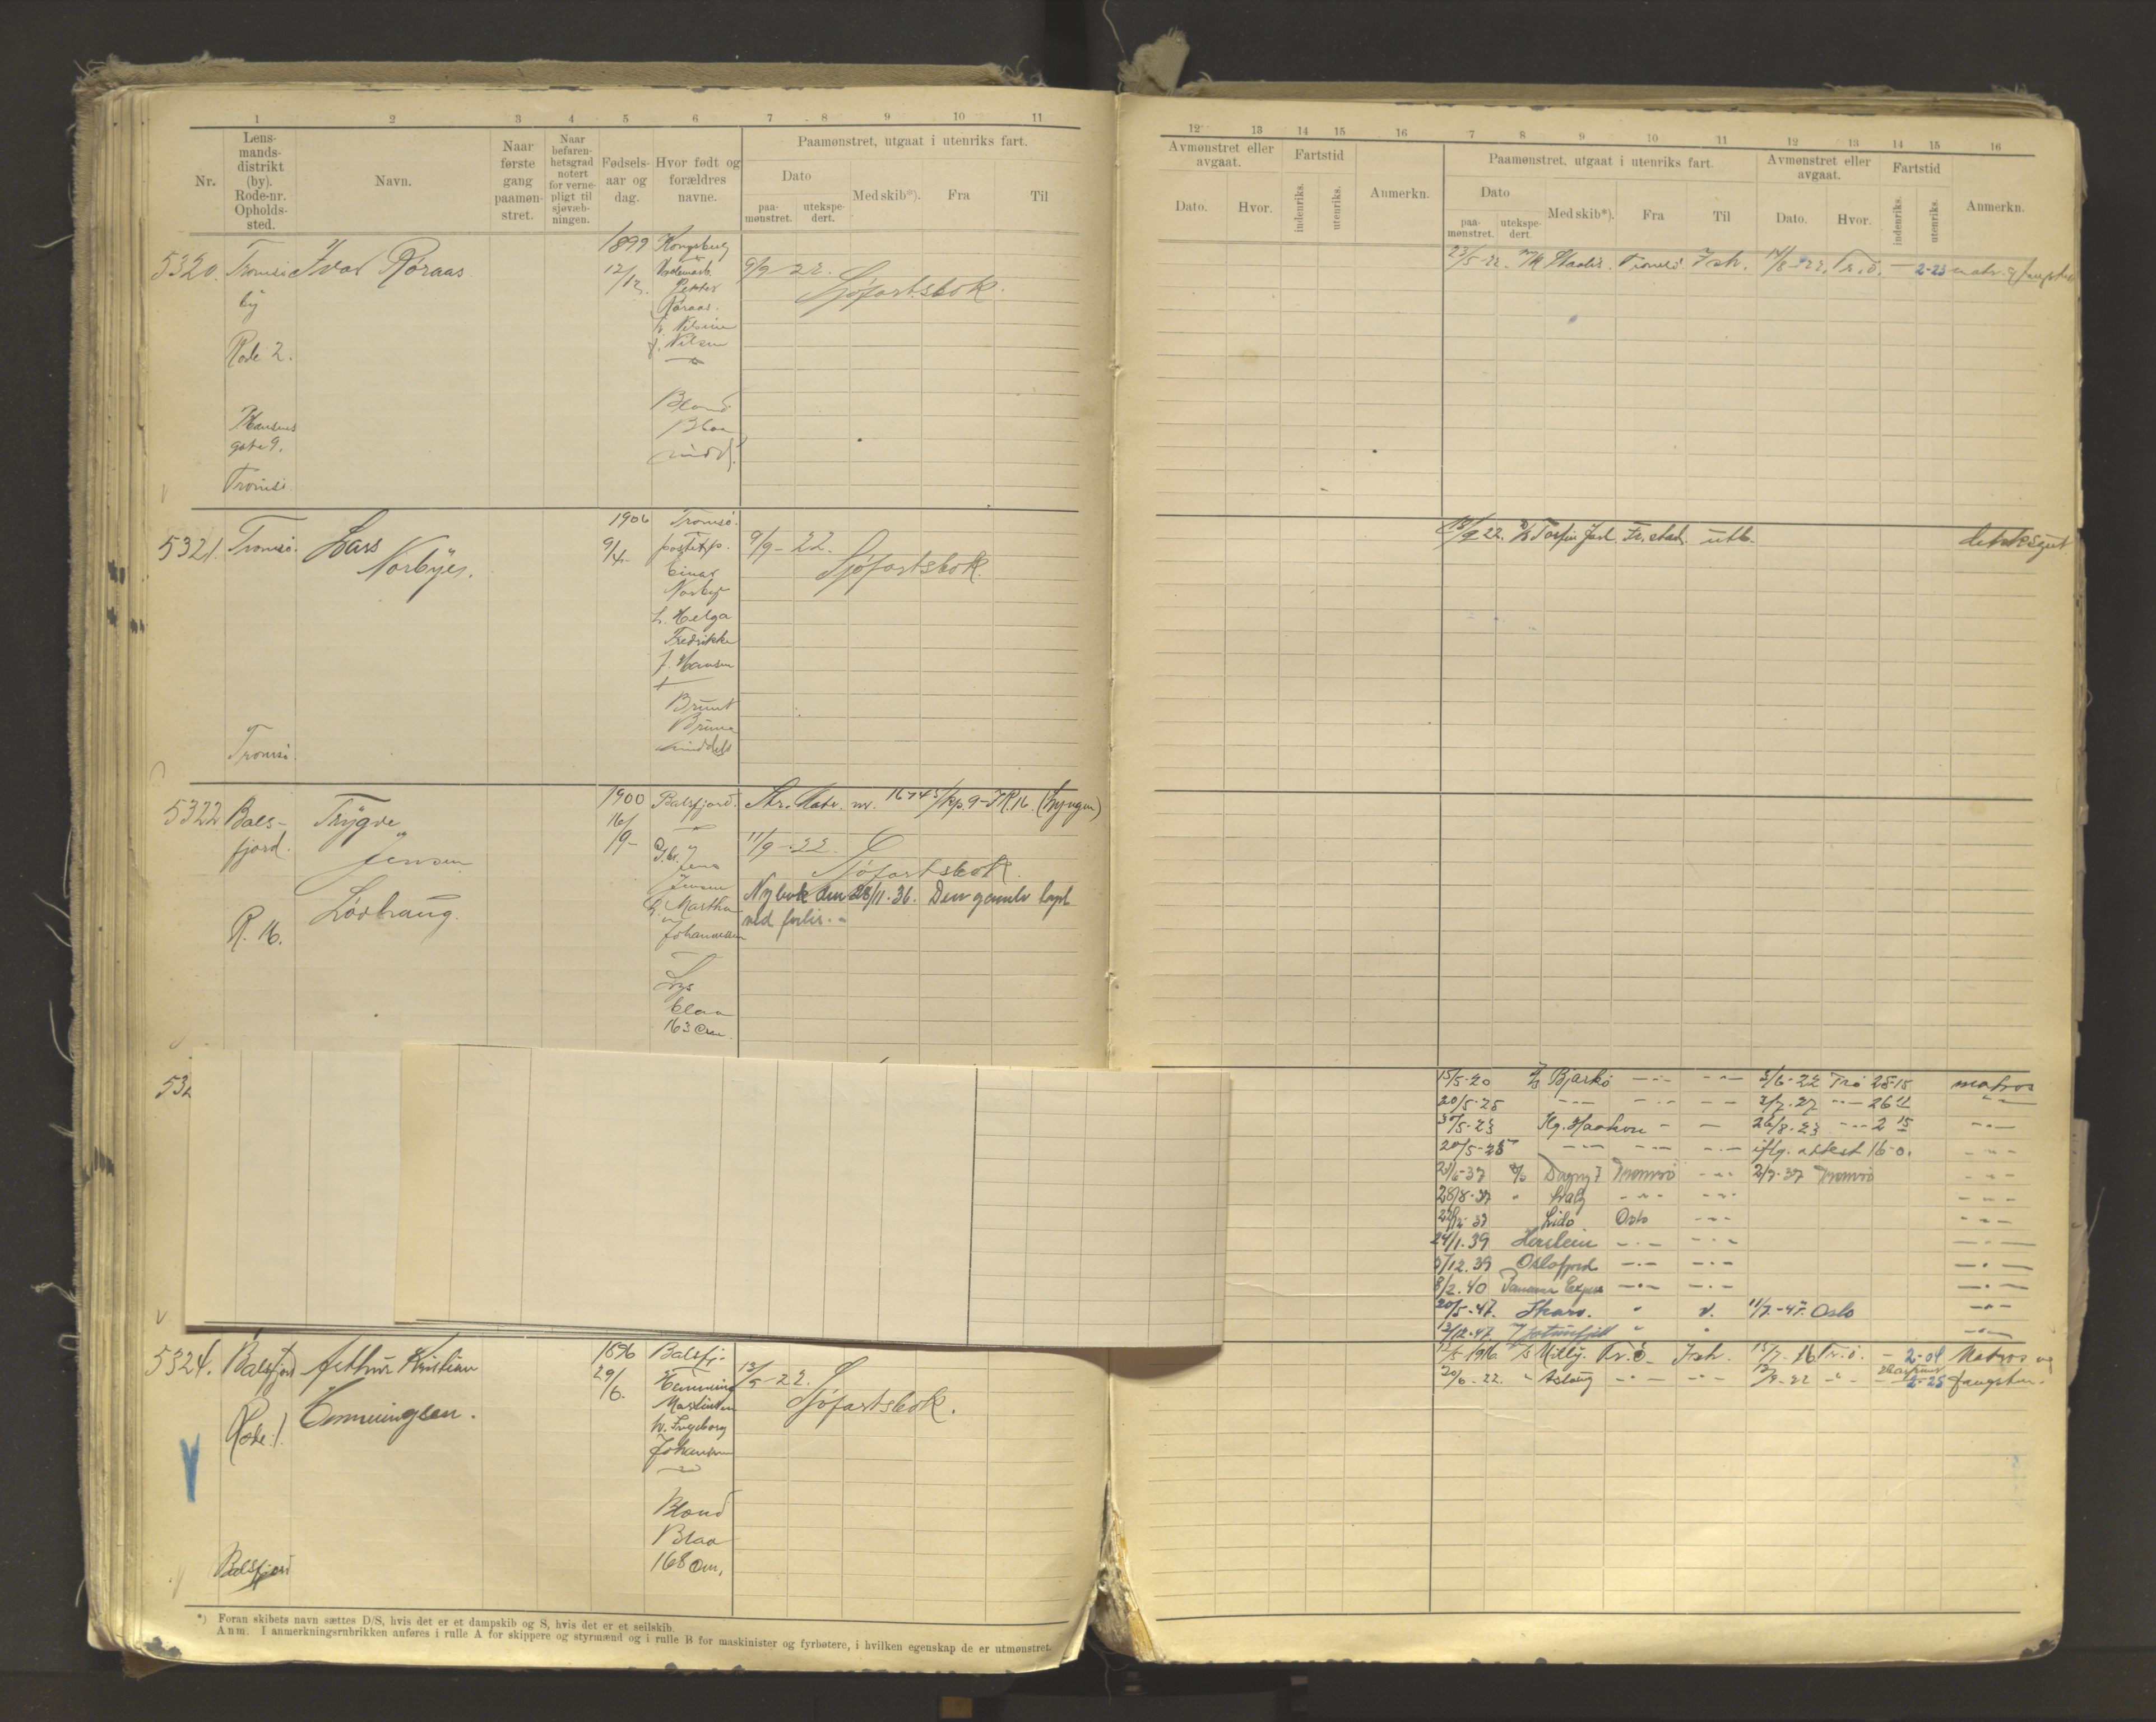 1 2 3 4 5 6 7 8 9 10 11
Nr.
Lens-
mands-
distrikt
(by).
Rode-nr.
Opholds-
sted.
Navn.
Naar
første
gang
paamøn-
stret.
Naar
befaren-
hetsgrad
notert
for verne-
pligt til
sjøvæb-
ningen.
Fødsels-
aar og
dag.
Hvor født og
forældres
navne.
Paamønstret, utgaat i utenriks fart.
Dato
paa-
mønstret.
utekspe-
dert.
Med skib*).
Fra
Til
5320. Tromsø Ivar Røraas 1899 Kongsberg
12/12. 9/9-22. Sjøfartsbok.
by
Petter
Røraas.
Nilsen
Rode 2.
Blond
Blaa
middel
gate 9.
Tromsø
5321. Tromsø. Lars 1906 Tromsø.
Norbye. 9/4- 9/9-22. Sjøfartsbok.
Einar
Norbye
h. Helga
Fredrikke
f. Hansen
Brunt
Brune
middels
Tromsø.
5322 Bals- Trygve 1900 Balsfjord.
fjord. Jensen 16/9- 11/9-22. Sjøfartsbok.
Jens
Jensen
h. Martha
Johannessen
R. 16. Løvhaug.
Ny bok den 28/11-36. Den gamle tapt
ved forlis.
Lys
blaa
163 Cm.
532
5324. Balsfjord Arthur Kristian 1896 Balsfj.
29/6. 13/9-22. Sjøfartsbok.
Rode 1. Henningsen.
Henning
Martinsen
h. Ingeborg
Johansen
Blond
Blaa
168 Cm.
Balsfjord
*) Foran skibets navn sættes D/S, hvis det er et dampskib og S, hvis det er et seilskib.
Anm. I anmerkningsrubrikken anføres i rulle A for skippere og styrmænd og i rulle B for maskinister og fyrbøtere, i hvilken egenskap de er utmønstret.
12 13 14 15 16 7 8 9 10 11 12 13 14 15 16
Avmønstret eller
avgaat.
Dato.
Hvor.
Fartstid
indenriks.
utenriks.
Anmerkn.
Paamønstret, utgaat i utenriks fart.
Dato
paa-
mønstret.
utekspe-
dert.
Med skib*).
Fra
Til
Avmønstret eller
avgaat.
Dato.
Hvor.
Fartstid
indenriks.
utenriks.
Anmerkn.
23/5-22. Tromsø Ish. 14/8-22. Tr.ø. - 2-23
13/9 22. D/S Torfin Jarl Fr.stad. utl. dæksgut
15/5-20 Bjarkø - " - - " - 5/6-22 Trø 25-15 matros
20/5-25 - " - - " - - " - 2/7-27 - " - 26 11 - " -
30/5-23 Kg. Haakon - - 26/8-23 - " - 2 15 - " -
20/5-25 - " - - " - - " - iflg. attest 16-0. - " -
Dagny I Tromsø - " - 2/7-37 Tromsø - " -
28/8-37 " - " - - " - - " -
Lido Oslo - " - - " -
24/1.39 Herstein - " - - " - - " -
5/12.39 Oslofjord - " - - " - - " -
8/2.40 Panama Express - " - - " - - " -
20/5-47. " 11/7-47. Oslo - " -
13/12-47. Jotunfjell " " - " -
1916. Milly. Tr.ø - Ish. 15/7-16 Tr.ø. - 2-04 Matros og
20/6-22. " Aslaug - " - - " - 13/8-22 - " - 2-25 fangstm.